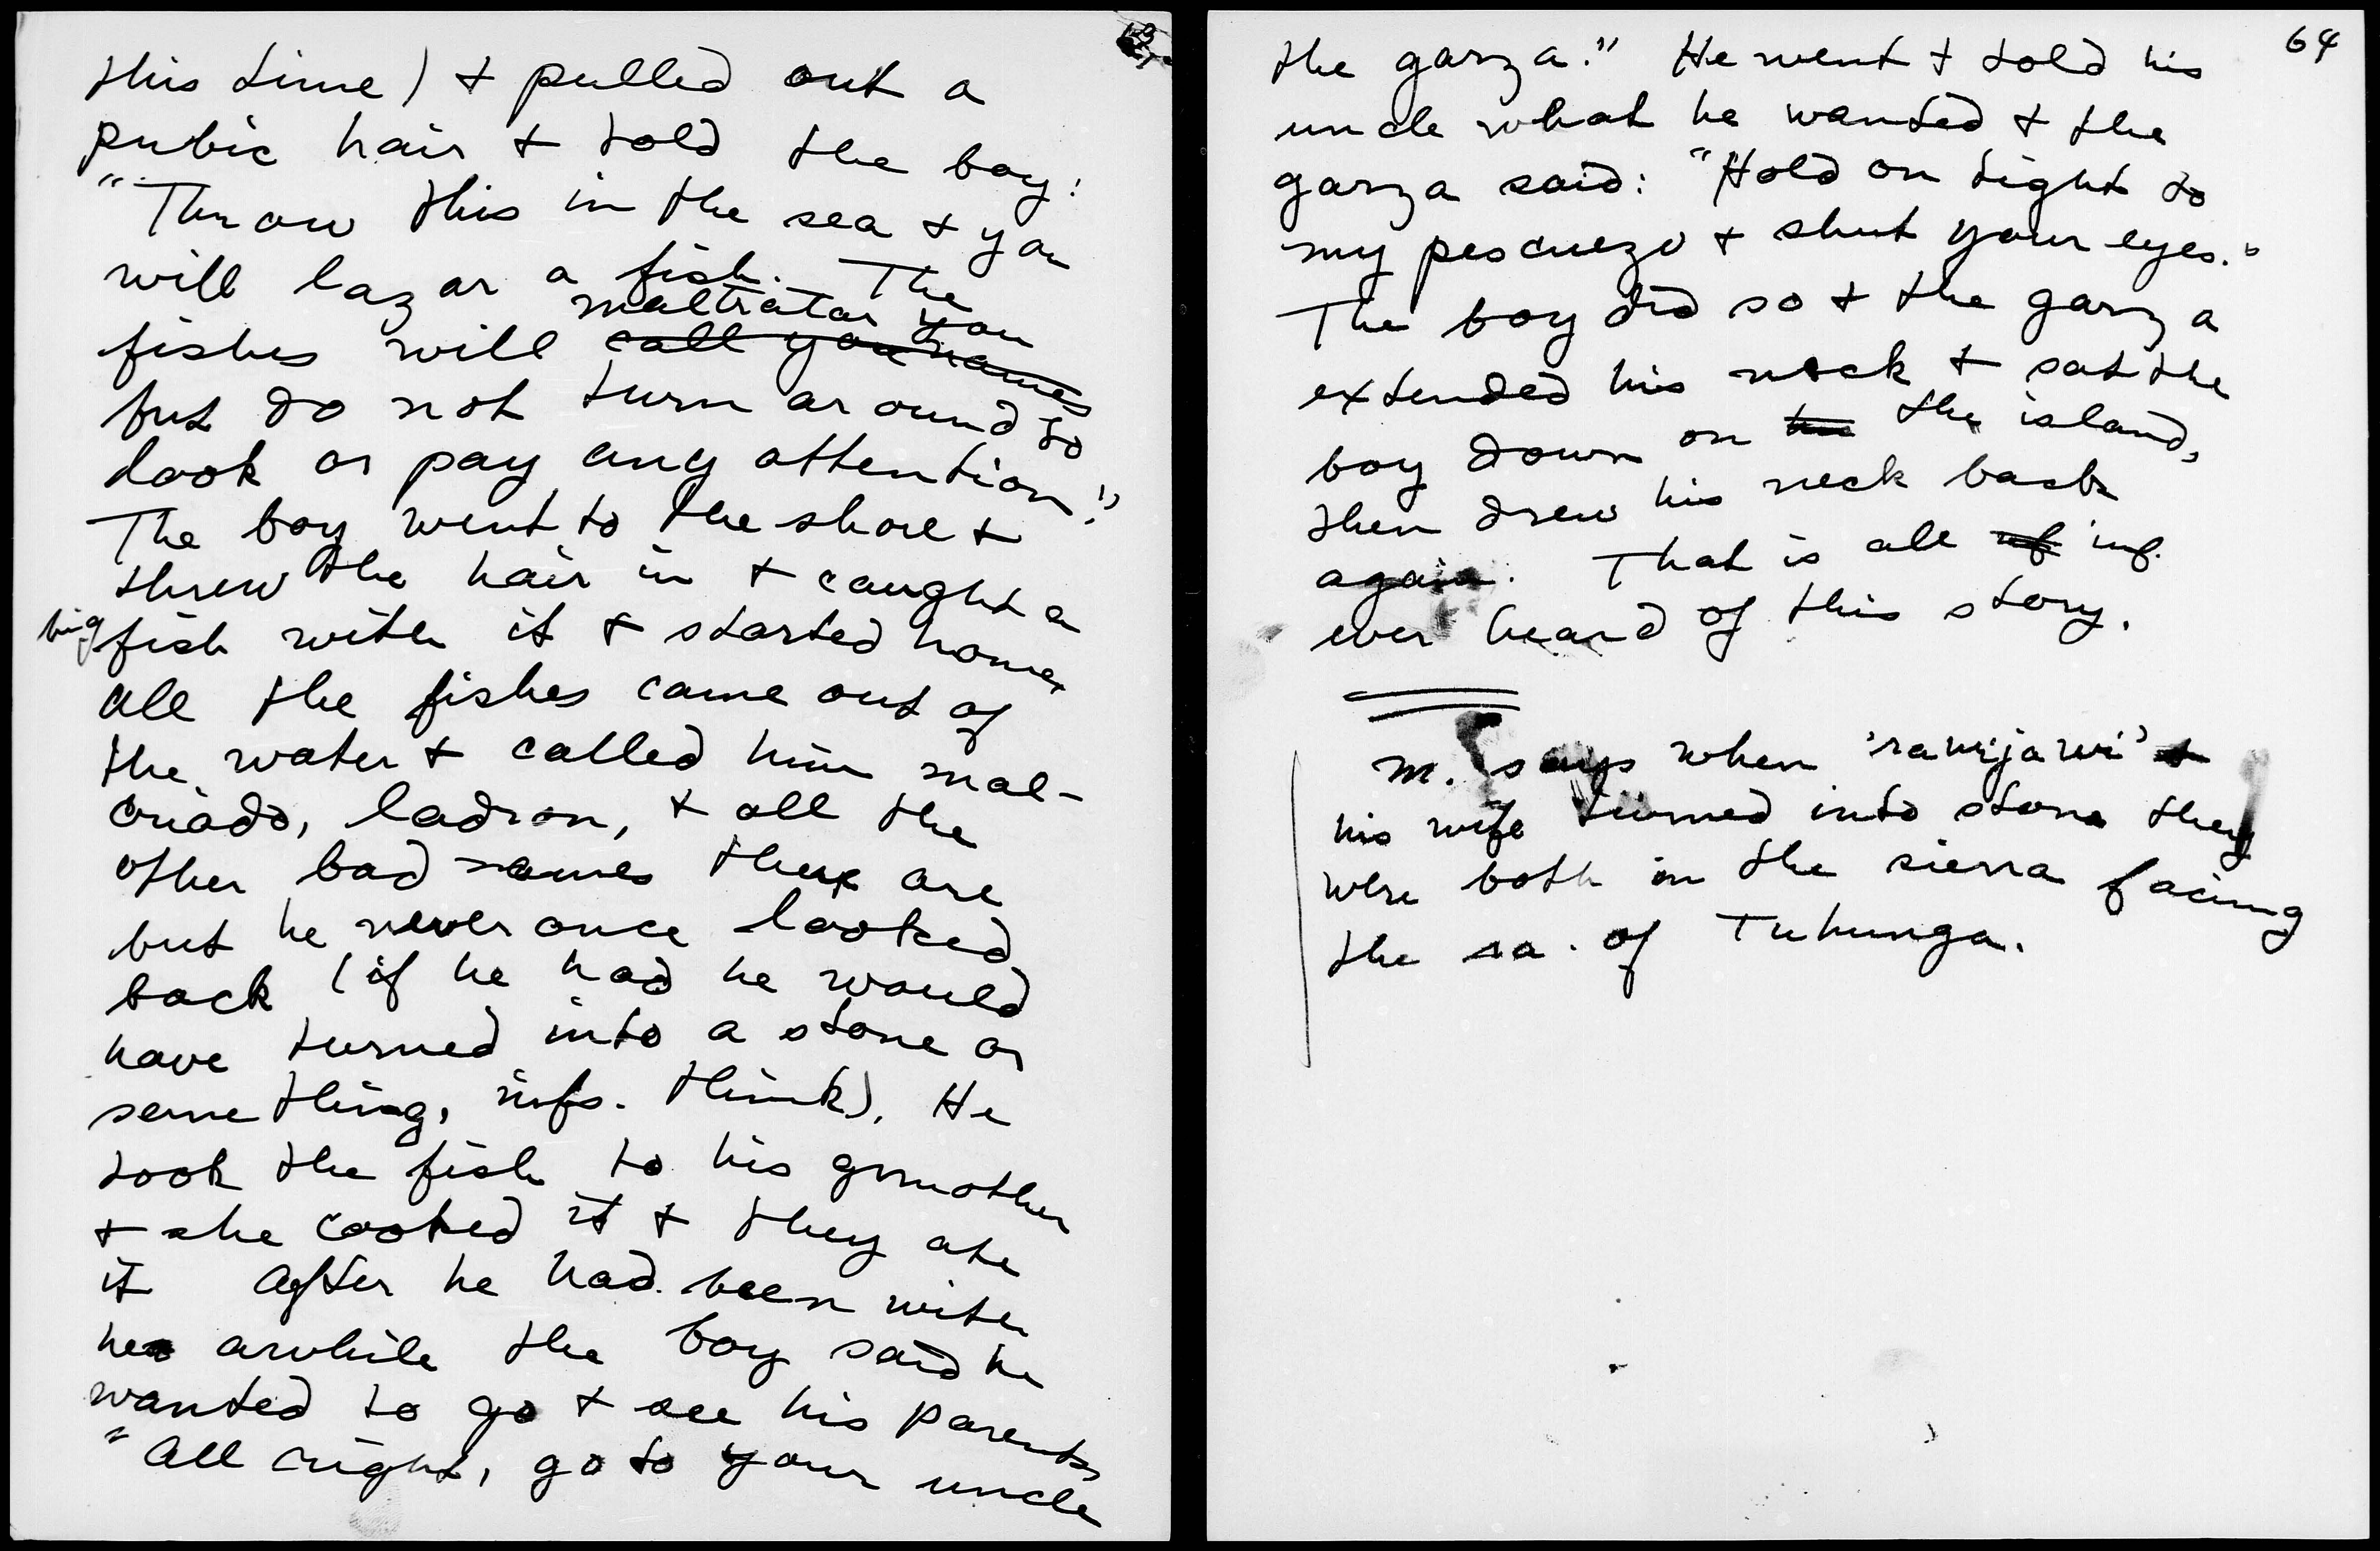 this time) + pulled out a
pubic hair + told the boy:
"Throw this in the sea + you
will lazar a fish. The
maltratar you
fishes will call you names
but do not turn around to
look or pay any attention."
The boy went to the shore +
threw the hair in + caught a
big fish with it + started home.
All the fishes came out of
the water + called him mal-
criado, ladron, + all the
other bad names there are
but he never once looked
back (if he had he would
have turned into a stone or
something, infs. think). He
took the fish to his grmother
+ she cooked it + they ate
it After he had been with
her awhile the boy said he
wanted to go + see his parents
"All right, go to your uncle
64
the garza." He went + told his
uncle what he wanted + the
garza said: "Hold on tight to
my pescuezo + shut your eyes."
The boy did so + the garza
extended his neck + sat the
boy down on the island,
then drew his neck back
again. That is all inf.
ever heard of this story.
M. says when 'rawijawi' +
his wife turned into stone they
were both in the sierra facing
the sa. of Tuhunga.